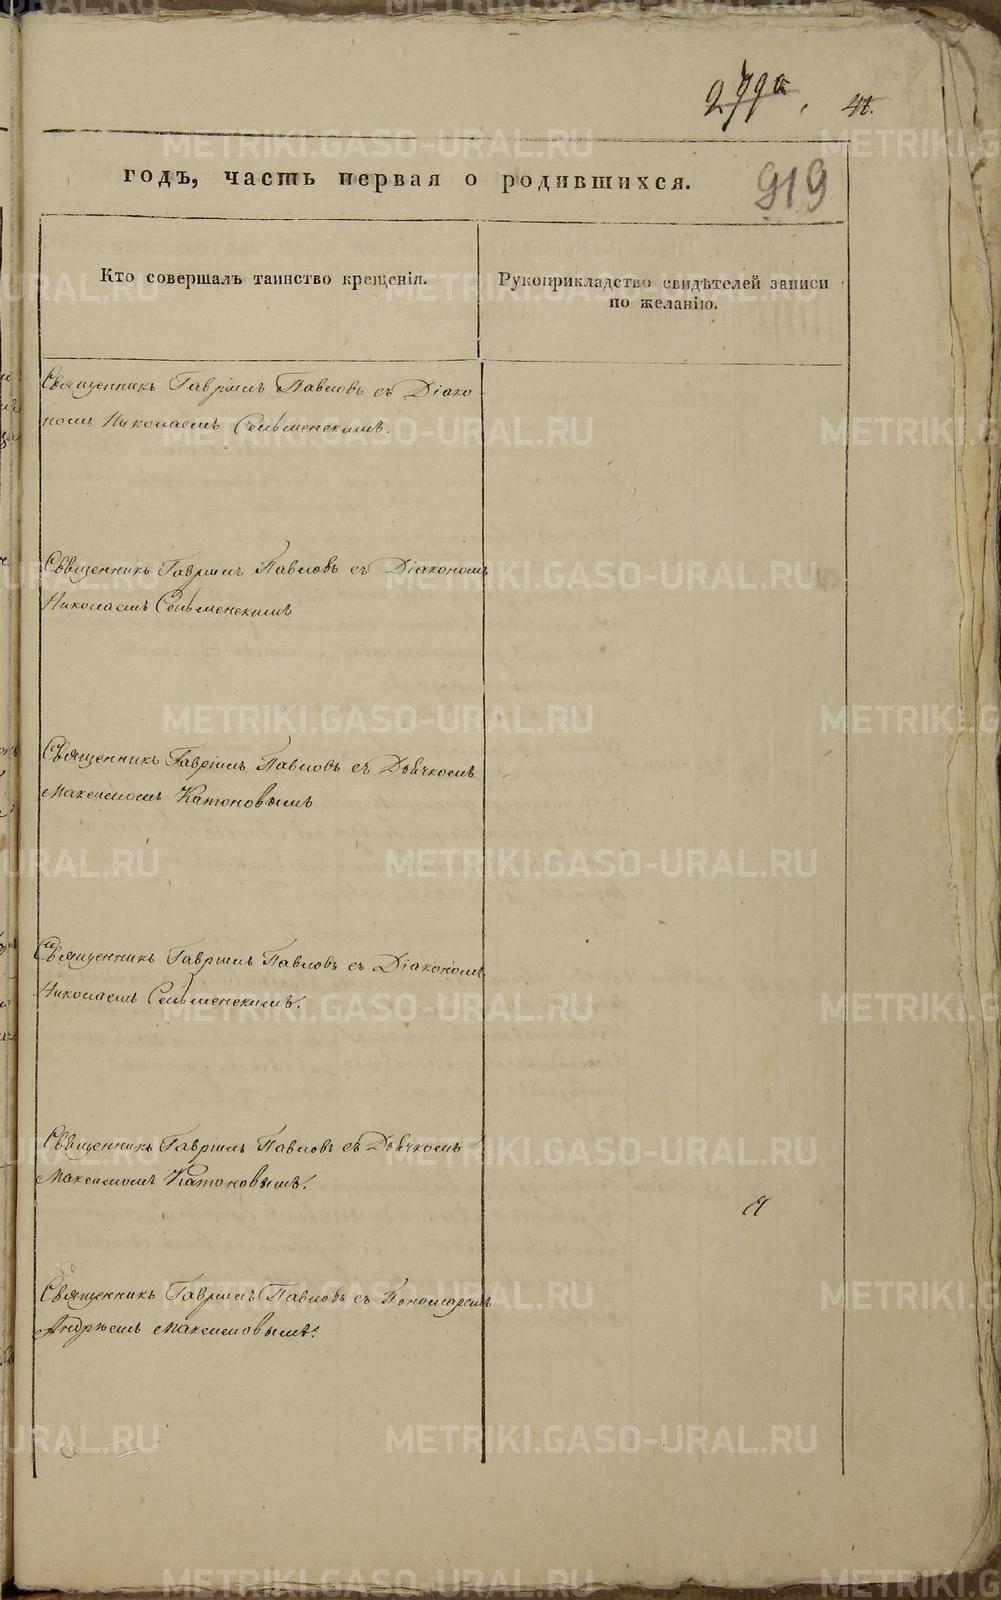 279а. 41.
годъ, часть первая о родившихся.
919
Кто совершалъ таинство крещенія.
Рукоприкладство свидѣтелей записи
по желанію.
Священникъ Гавріилъ Павловъ съ Діако-
номъ Николаемъ Сельменскимъ.
Священникъ Гавріилъ Павловъ съ Діакономъ
Николаемъ Сельменскимъ
Священникъ Гавріилъ Павловъ съ Дьячкомъ
Максимомъ Катоновымъ
Священникъ Гавріилъ Павловъ съ Діакономъ
Николаемъ Сельменскимъ.
Священникъ Гавріилъ Павловъ съ Дьячкомъ
Максимомъ Катоновымъ.
Священникъ Гавріилъ Павловъ съ Пономаремъ
Андреемъ Максимовымъ.
METRIKI.GASO-URAL.RU